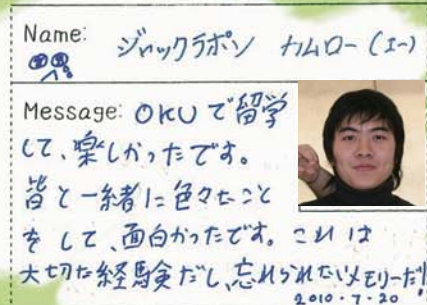 Name: ジャックラポン カムロー(エー)
Message: OKUで留学
して、楽しかったてす。
皆と一緒に色々なこと
をして、面白かったです。これは
大切な経験だし、忘れられないメモリーだ!
2010・7・20